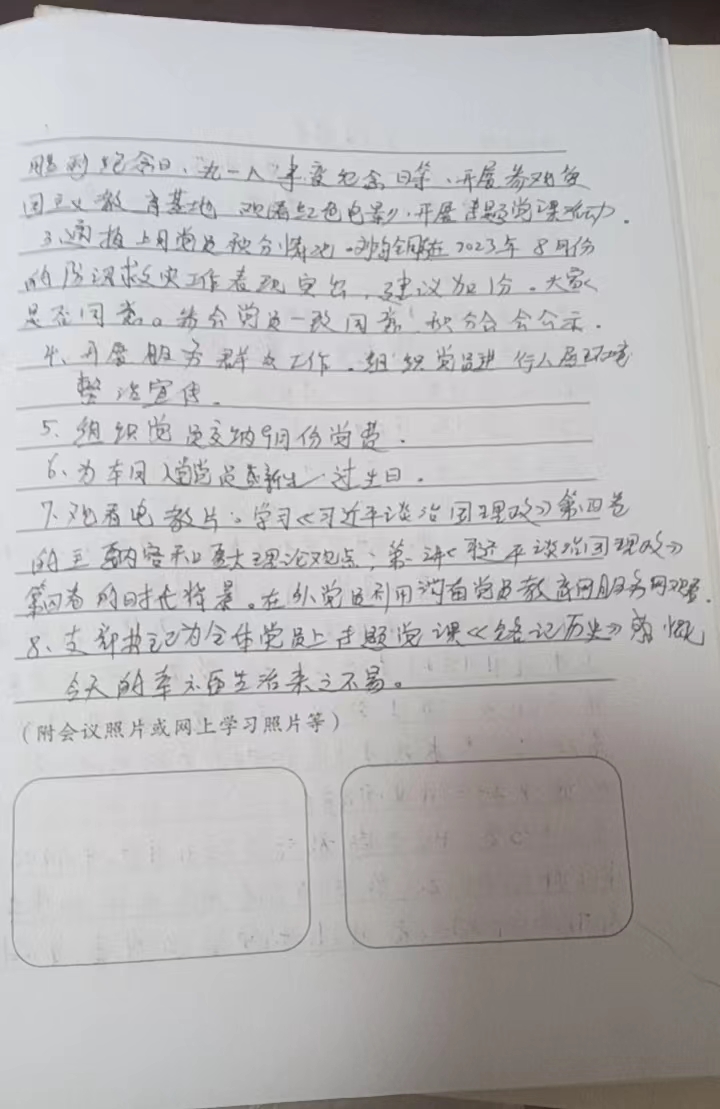 胜利纪念日、九一八事变纪念日等、开展参观爱
国主义教育基地 观看红色电影，开展主题党课活动.
3.通报上月党员积分情况. 2023年8月份
的防汛救灾工作表现突出，建议加1分。大家
是否同意。参会党员一致同意，积分会公示.
4、开展服务群众工作.组织党员进行人居环境
整治宣传.
5、组织党员交纳9月份党费.
6、为本月入党党员 过生日.
7、观看电教片：学习《习近平谈治国理政》第四卷
的主要内容和重大理论观点；第一讲《习近平谈治国理政》
第四卷的时代背景。在外党员利用河南党员教育网服务网观看.
8、支部书记为全体党员上主题党课《铭记历史》
今天的幸福生活来之不易。
（附会议照片或网上学习照片等）